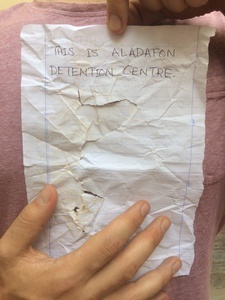 THIS IS ALADAFON
DETENTION CENTRE.